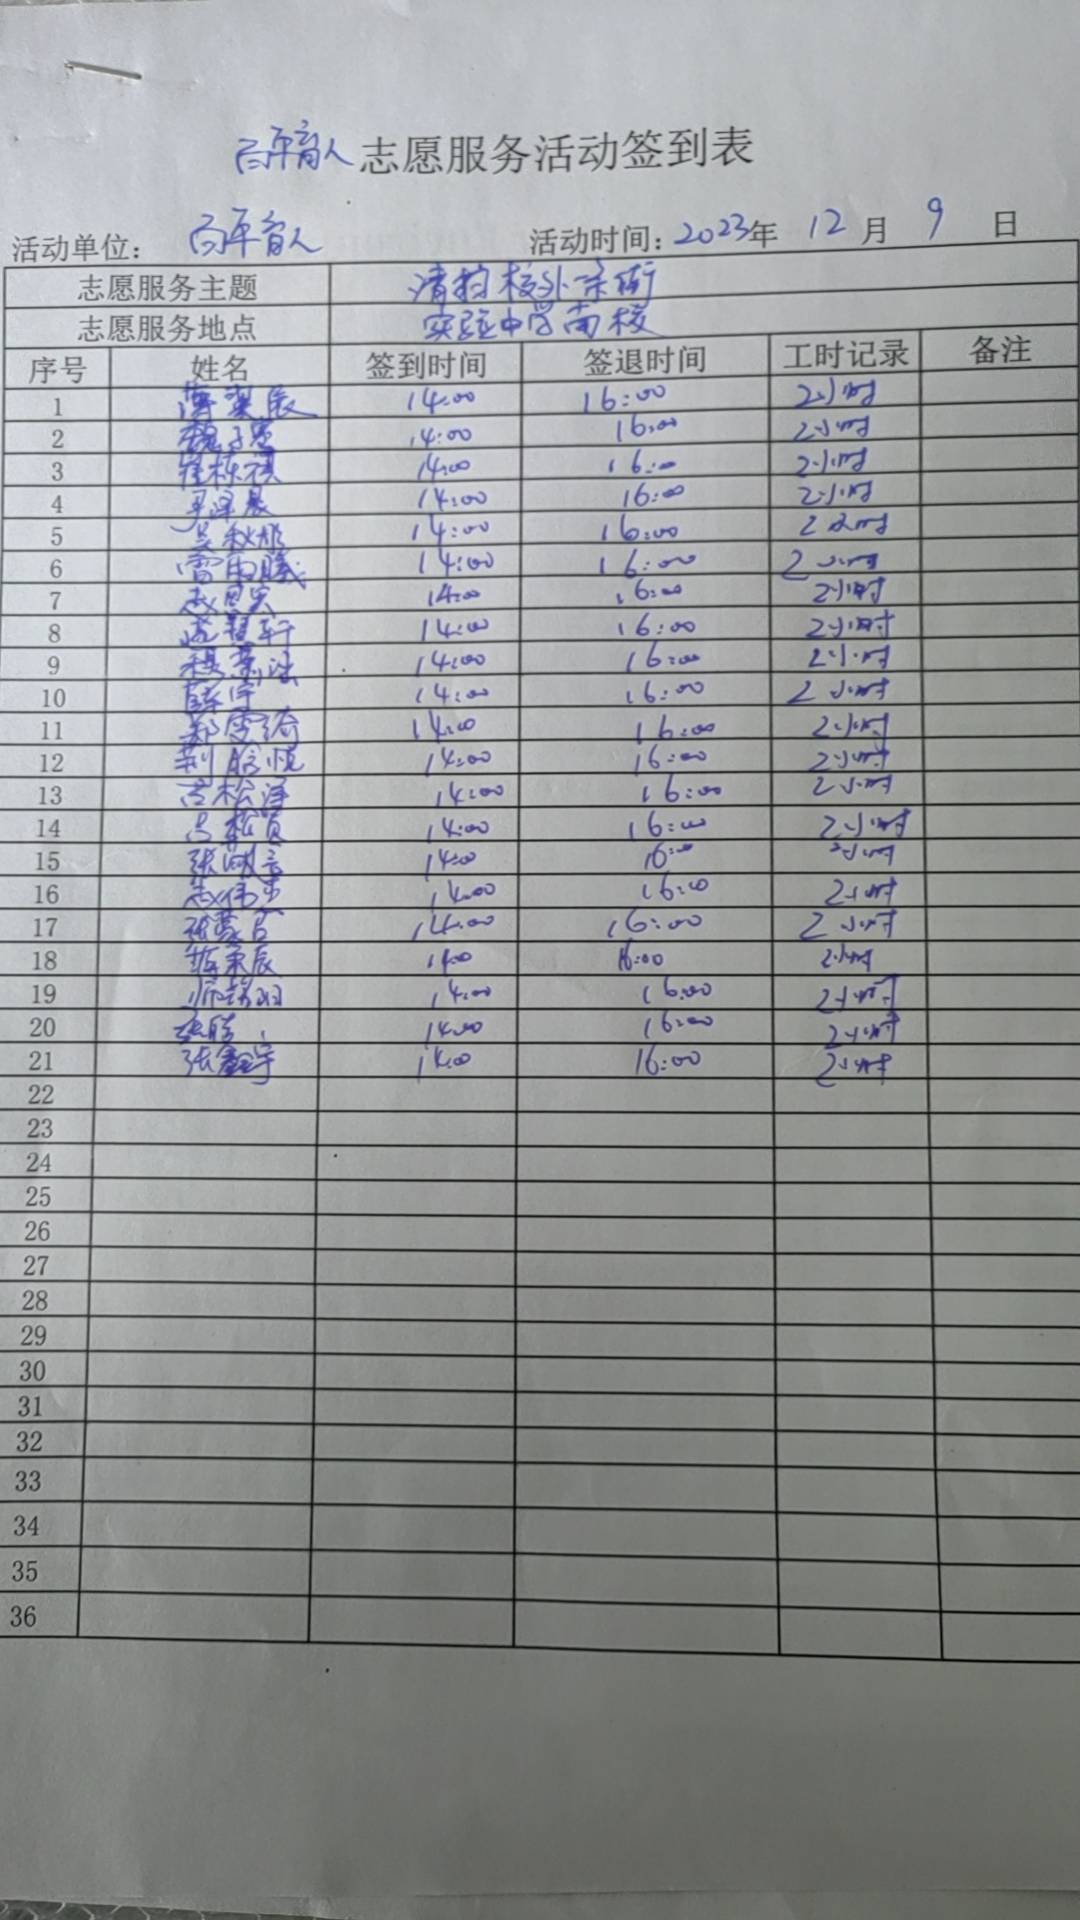 育人志愿服务活动签到表
活动单位： 育人 活动时间：2023年 12 月 9 日
志愿服务主题 清扫校外
志愿服务地点 实验中学南校
序号 姓名 签到时间 签退时间 工时记录 备注
1 14:00 16:00 2小时
2 14:00 16:00 2小时
3 14:00 16:00 2小时
4 14:00 16:00 2小时
5 14:00 16:00 2小时
6 14:00 16:00 2小时
7 14:00 16:00 2小时
8 14:00 16:00 2小时
9 14:00 16:00 2小时
10 薛宇 14:00 16:00 2小时
11 郑雯绮 14:00 16:00 2小时
12 荆 悦 14:00 16:00 2小时
13 吕松泽 14:00 16:00 2小时
14 14:00 16:00 2小时
15 张 14:00 16:00 2小时
16 赵伟 14:00 16:00 2小时
17 张 14:00 16:00 2小时
18 辰 14:00 16:00 2小时
19 14:00 16:00 2小时
20 张皓 14:00 16:00 2小时
21 张鑫宇 14:00 16:00 2小时
22
23
24
25
26
27
28
29
30
31
32
33
34
35
36